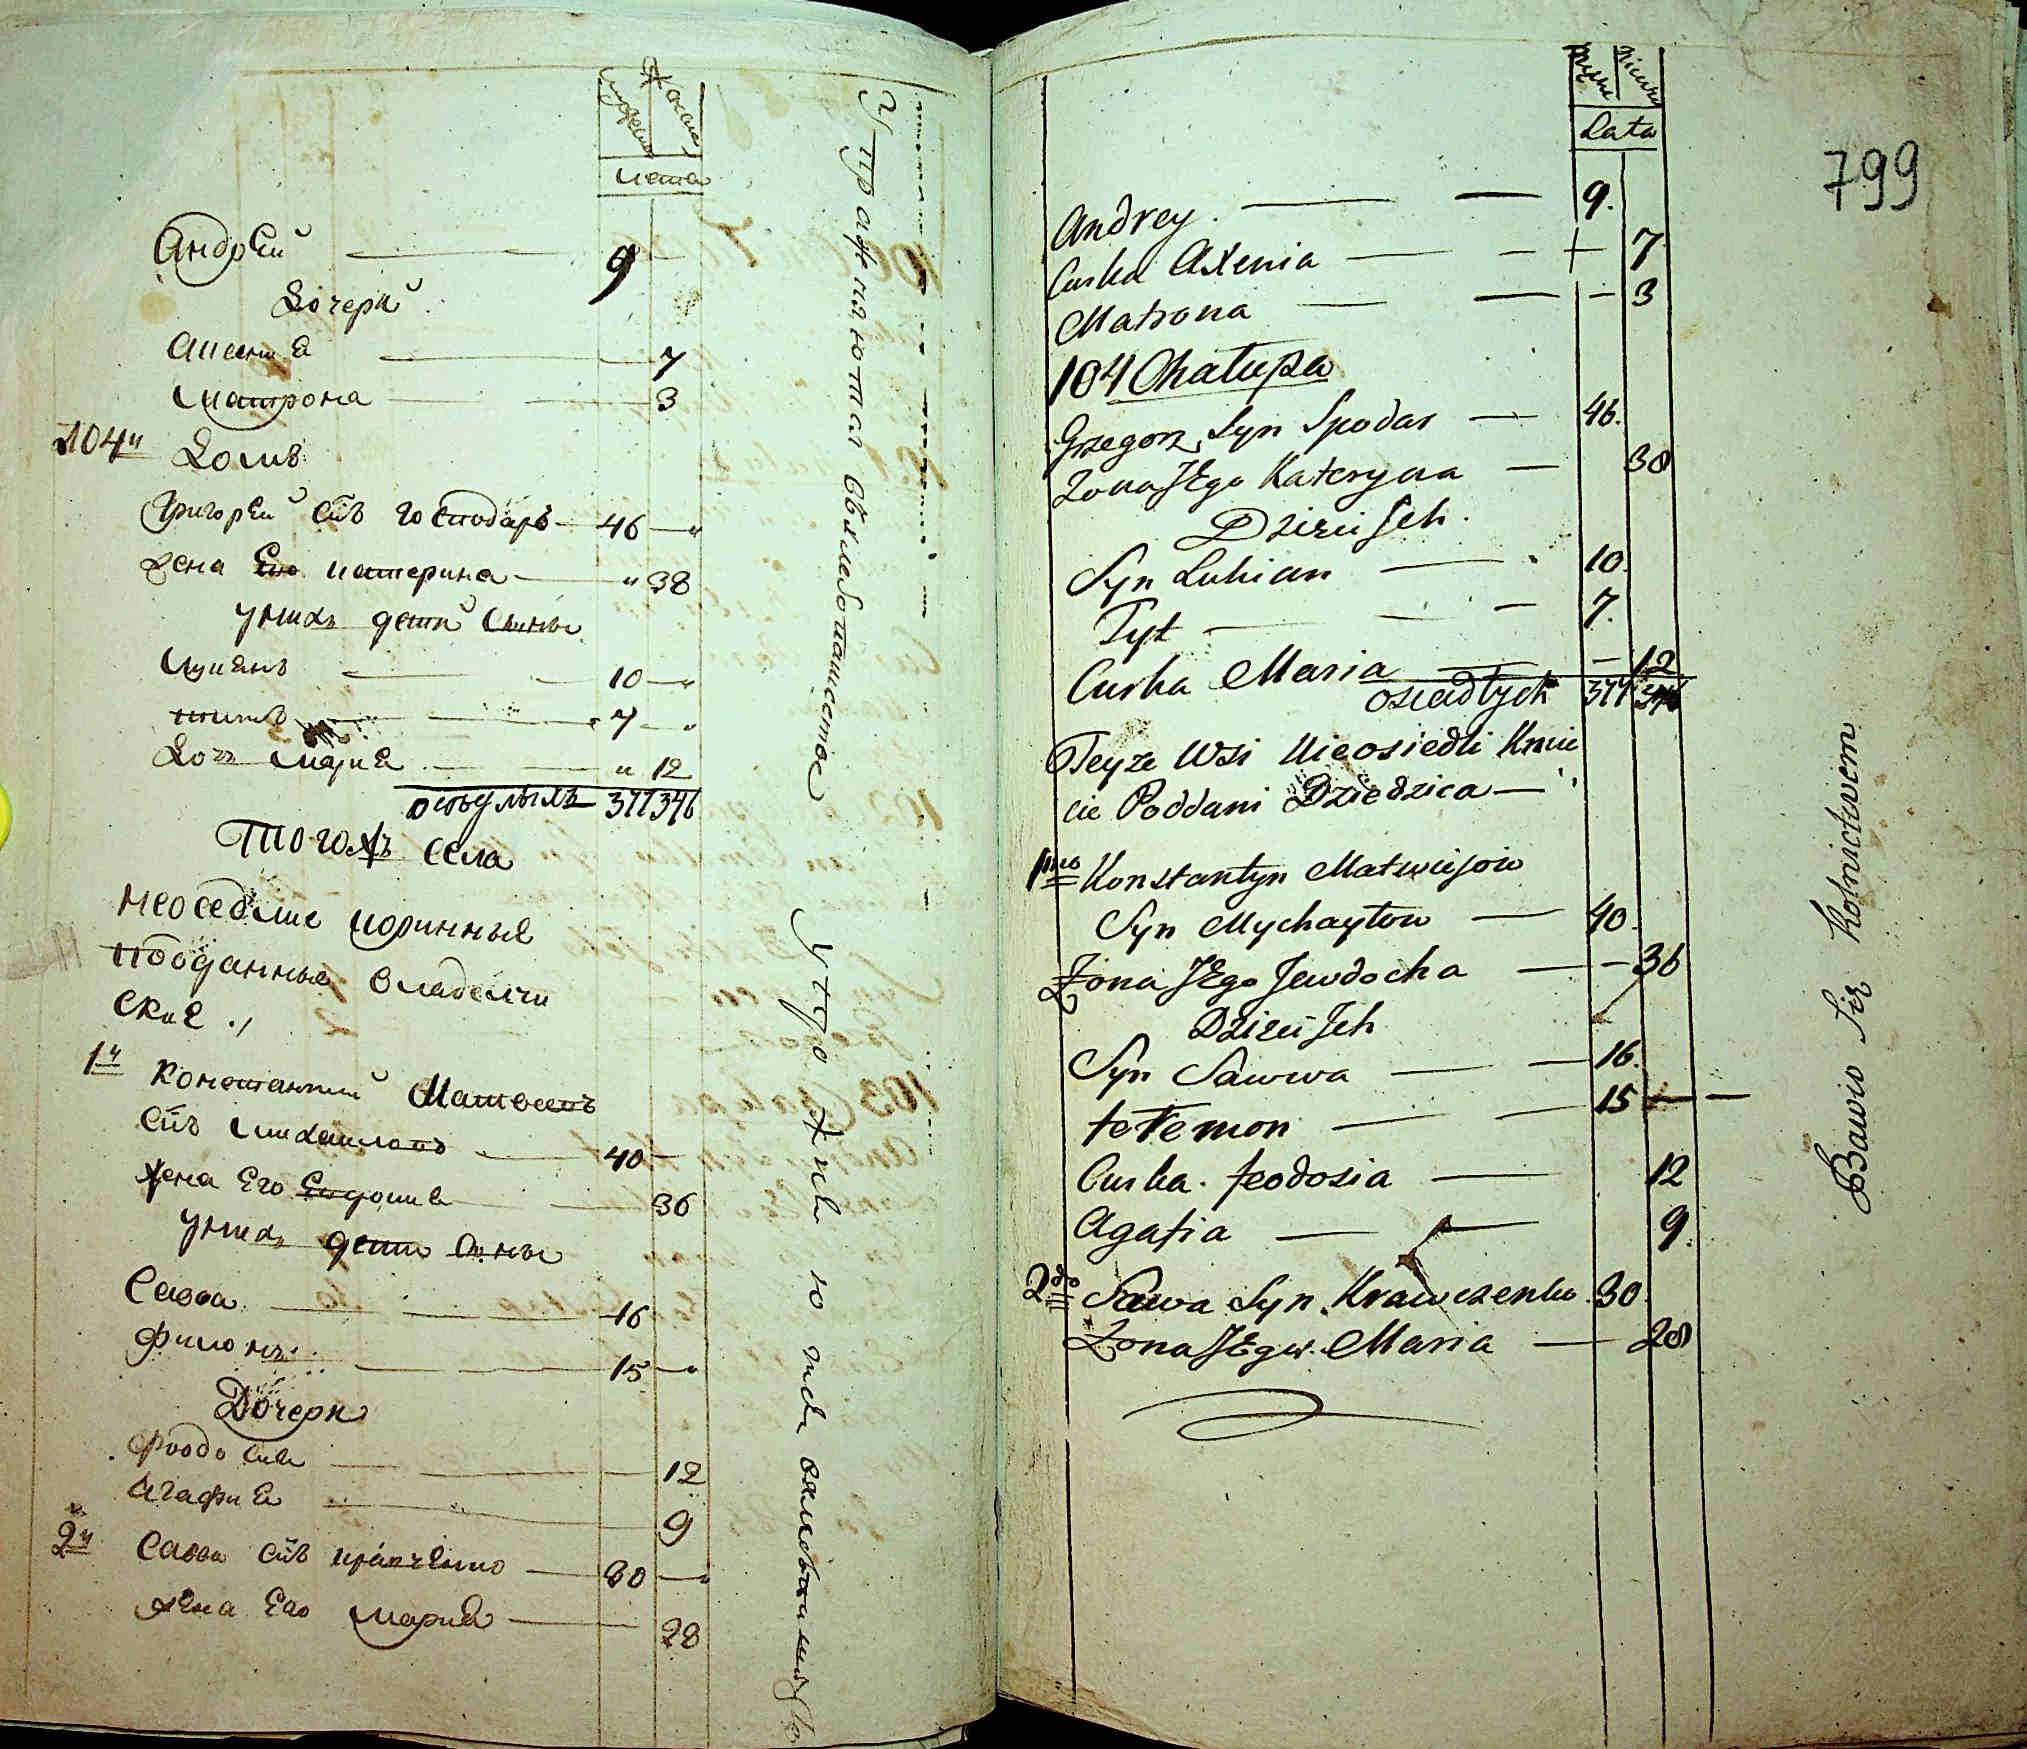 Лета
Андрей 9
Дочери
Аксения 7
Матрона 3
104й Домъ
Григорей Снъ Господаръ 46
Жена Его Катерина 38
У нихъ дети Сыны
Лукянъ 10
Титъ 7
Дочь Мария 12
оседлыхъ 377 346
Тогожъ Села
Неоседлие Коринные
подданные владелче
ские
1й Константий Матвеевъ
Снъ Михаиловъ 40
Жена Его Евдокия 36
У нихъ дети Сыны
Савва 16
Филонъ 15
Дочери
Феодосия 12
Агафия 9
2й Савва Снъ Кравченко 30
Жена Его Мария 28
Упражняются въ хлебопашестве
799
Lata
Andrey 9.
Curka Axenia 7
Matrona 3
104 Chałupa
Grzegorz Syn Spodar 46.
Zona JEgo Kateryna 38
Dzieci Jch.
Syn Lukian 10.
Tyt 7.
Curka Maria 12
osiadłych 377 346
Teyze Wsi Nieosiedli Kmie
cie Poddani Dziedzica
1mo Konstantyn Matwiejow
Syn Mychayłow 40.
Zona JEgo Jewdocha 36
Dzieci Jch
Syn Sawwa 16.
15
Curka. feodosia 12
Agafia 9.
2do Sawa Syn Krawczenko 30.
Zona JEgo. Maria 28
Bawio Się Rolnictwem